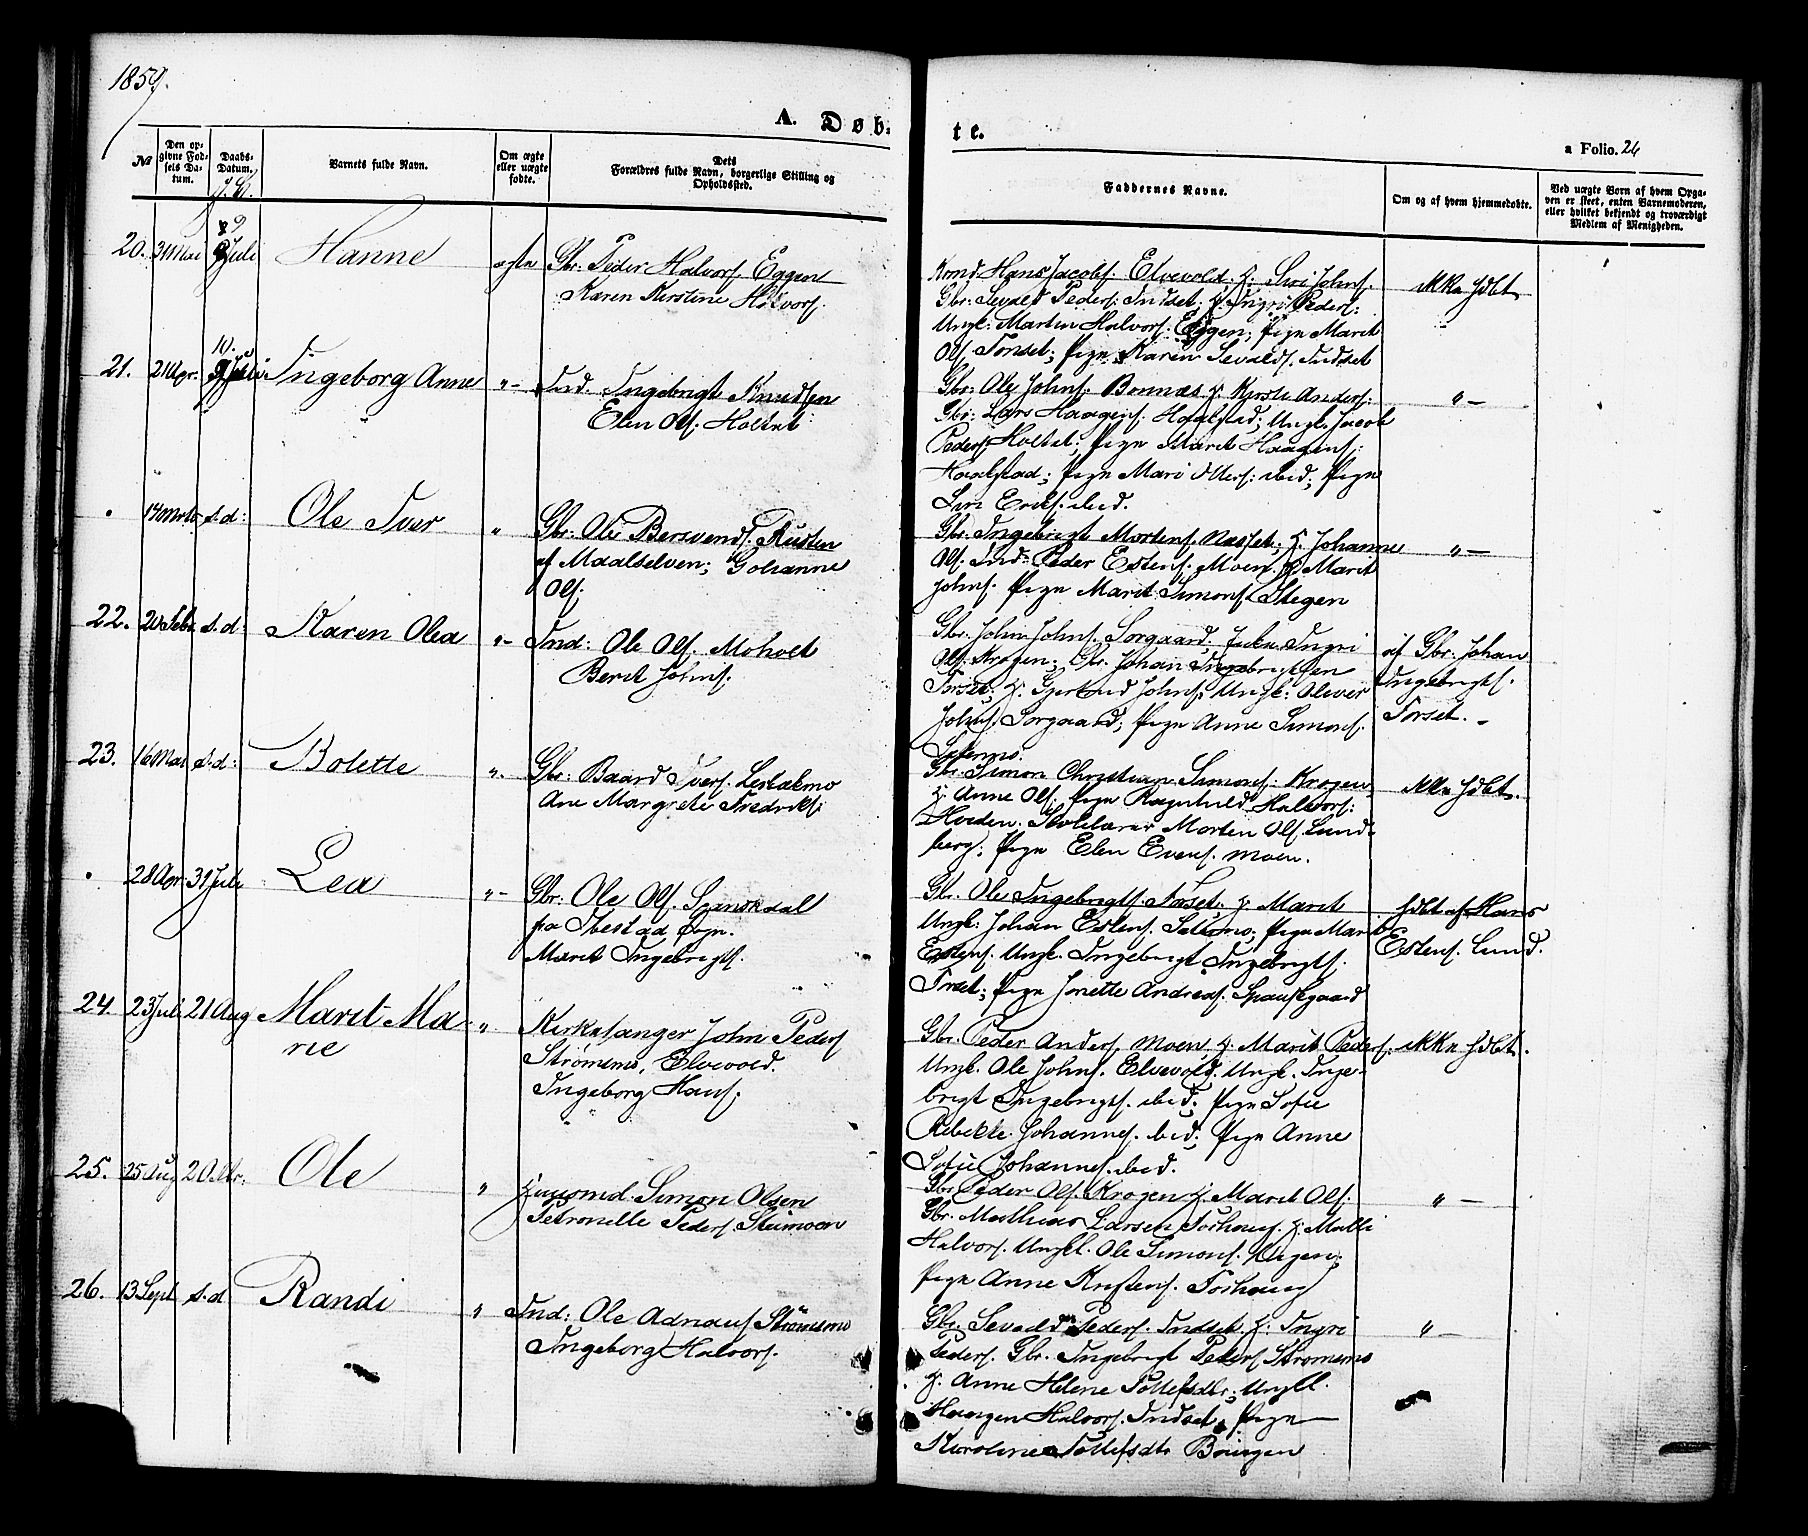 1859.
A. Døb-
te.
a Folio. 26
No
Den op-
givne Fød-
sels Da-
tum.
Daabs-
Datum.
Barnets fulde Navn.
Om ægte
eller uægte
fødte.
Dets
Forældres fulde Navn, borgerlige Stilling og
Opholdssted.
Faddernes Navne.
Om og af hvem hjemmedøbte.
Ved uægte Børn af hvem Opga-
ven er skeet, enten Barnemoderen,
eller hvilket bekjendt og troværdigt
Medlem af Menigheden.
20. 31 Mai Juli Hanne ægte Gbr. Peder Halvors. Eggen
Karen Kirstine Halvors.
Hans Jacobs. Elvevold. H. Siri Johns.
Gbr. Sevald Peders. Indset. H. Ingri Peders.
Ungk. Martin Halvors. Eggen; Pige Marit
Ols. Tonset; Pige Karen Sevalds. Indset
ikke hdbt.
21. 21 Apr. Juli Ingeborg Anne "- Ind. Ingebrigt Knudsen
Elen Ols. Holtet
Gbr: Ole Johns. Bonnes H. Kirsti Anders:
Gbr: Lars Haagens. Haalstad; Ungk. Jacob
Peders Holtet; Pige Marit Haagens:
Haalstad; Pige Mari Ibid; Pige
Siri Eriks. ibid.
"-
14 Marts s.d: Ole Iver " Gbr: Ole Bersvends. Rusten
af Maalselven; Johanne
Ols.
Gbr. Ingebrigt Mortens. Næsset; H. Johanne
Ols. Ind. Peder Estens. Moen. H. Marit
Johns. Pige Marit Simons. Stegen
"-
22. 20 Febr. s.d: Karen Olea "- Ind: Ole Ols. Moholt
Berit Johns.
Gbr. John Johns. Sørgaard. Enke Ingri
Ols. Krogen; Gbr. Johan Ingebrigtsen
Forset; H. Gjertrud Johns; Ungk: Oliver
Johns. Sørgaard; Pige Anne Simons.
Sætermo.
af Gbr. Johan
Ingebrigts.
Forset. -
23. 16 Mai s.d: Bolette ". Gbr: Baard Ivers. Lestalmo
Ane Margrete Fredriks:
Gbr. Simon Christian Simons. Krogen,
H. Anne Ols. Pige Ragnhild Halvors:
Skolelærer Morten Ols. Lund-
berg; Pige Elen Evens. Moen.
ikke hdbt.
28 Apr. 31 Juli Lea "- Gbr: Ole Ols. Spanskdal
fra Ibestad Sogn.
Marit Ingebrigts.
Gbr. Ole Ingebrigts. Forset. H. Marit
Ungk: Johan Estens. Sætermo; Pige Marit
Estens. Ungk. Ingebrigt Ingebrigts.
Forset; Pige Jonette Andreas. Spansgaard
hdbt af Hans
Estens. Lund.
24. 23 Juli 21 Aug Marit Ma
rie " Kirkesanger John Peders
Strømsmo, Elvevold.
Ingeborg Hans.
Gbr. Peder Anders. Moen H. Marit Peders.
Ungk. Ole Johns. Elvevold. Ungk. Inge-
brigt Ingebrigts. ibid; Pige Sofie
Rebekke Johannes. ibid; Pige Anne
Sofie Johannes. ibid.
ikke hdbt.
25. 25 Aug 2 Oktr. Ole " Huusmd. Simon Olsen
Petronelle Peders. Steimoen
Gbr. Peder Ols. Krogen H. Marit Ols.
Gbr. Mathias Larsen Forhaug. H. Malli
Halvors. Ungkl. Ole Simons.
Pige Anne Kristens. Forhaug
"-
26. 13 Sept s.d Randi " Ind: Ole Strømsmo
Ingeborg Halvors.
Gbr. Sevald Peders. Indset. H. Ingri
Peders. Gbr. Ingebrigt Peders Strømsmo
H. Anne Helene Tollefsdtr; Ungkl.
Haagen Halvors. Indset. Pige
Karoline Tollefsdtr Bringen
"-